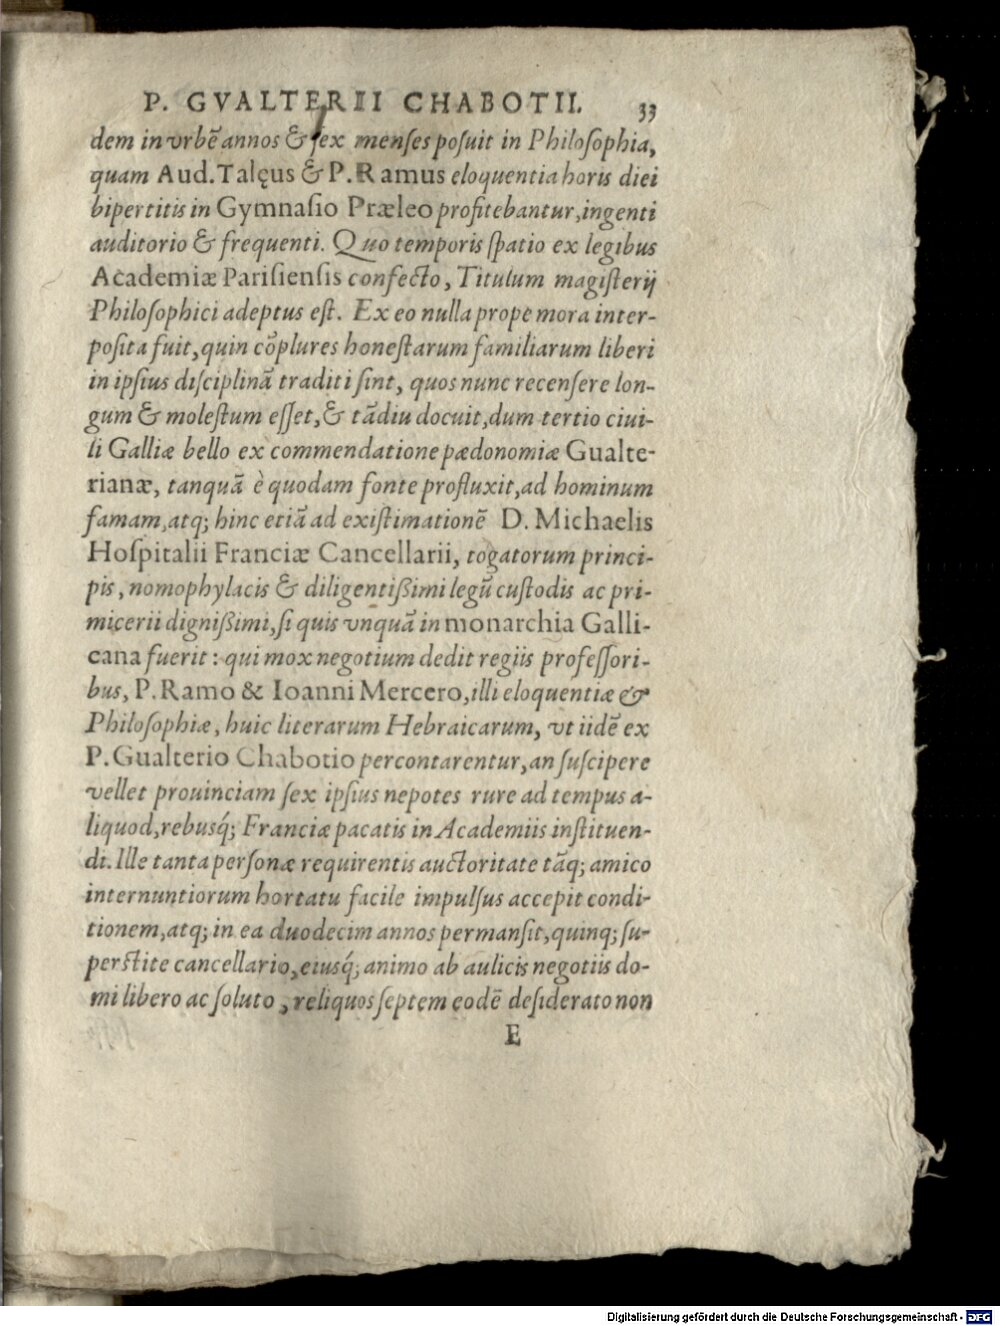 P. GVALTERII CHABOTII. 33
dem in vrbē annos & ſex menſes poſuit in Philoſophia,
quam Aud. Talęus & P. Ramus eloquentia horis diei
bipertitis in Gymnaſio Præleo profitebantur, ingenti
auditorio & frequenti. Quo temporis ſpatio ex legibus
Academiæ Pariſienſis confecto, Titulum magiſterij
Philoſophici adeptus eſt. Ex eo nulla prope mora inter-
poſita fuit, quin cōplures honeſtarum familiarum liberi
in ipſius diſciplinā traditi ſint, quos nunc recenſere lon-
gum & moleſtum eſſet, & tādiu docuit, dum tertio ciui-
li Galliæ bello ex commendatione pædonomiæ Gualte-
rianæ, tanquā è quodam fonte profluxit, ad hominum
famam, atq; hinc etiā ad exiſtimationē D. Michaelis
Hoſpitalii Franciæ Cancellarii, togatorum princi-
pis, nomophylacis & diligentiſſimi legū cuſtodis ac pri-
micerii digniſſimi, ſi quis vnquā in monarchia Galli-
cana fuerit : qui mox negotium dedit regiis profeſſori-
bus, P. Ramo & Ioanni Mercero, illi eloquentiæ &
Philoſophiæ, huic literarum Hebraicarum, vt iidē ex
P. Gualterio Chabotio percontarentur, an ſuſcipere
vellet prouinciam ſex ipſius nepotes rure ad tempus a-
liquod, rebusq́; Franciæ pacatis in Academiis inſtituen-
di. Ille tanta perſonæ requirentis auctoritate tāq; amico
internuntiorum hortatu facile impulſus accepit condi-
tionem, atq; in ea duodecim annos permanſit, quinq; ſu-
perſtite cancellario, eiusq́; animo ab aulicis negotiis do-
mi libero ac ſoluto, reliquos ſeptem eodē deſiderato non
E
Digitalisierung gefördert durch die Deutsche Forschungsgemeinschaft - DFG